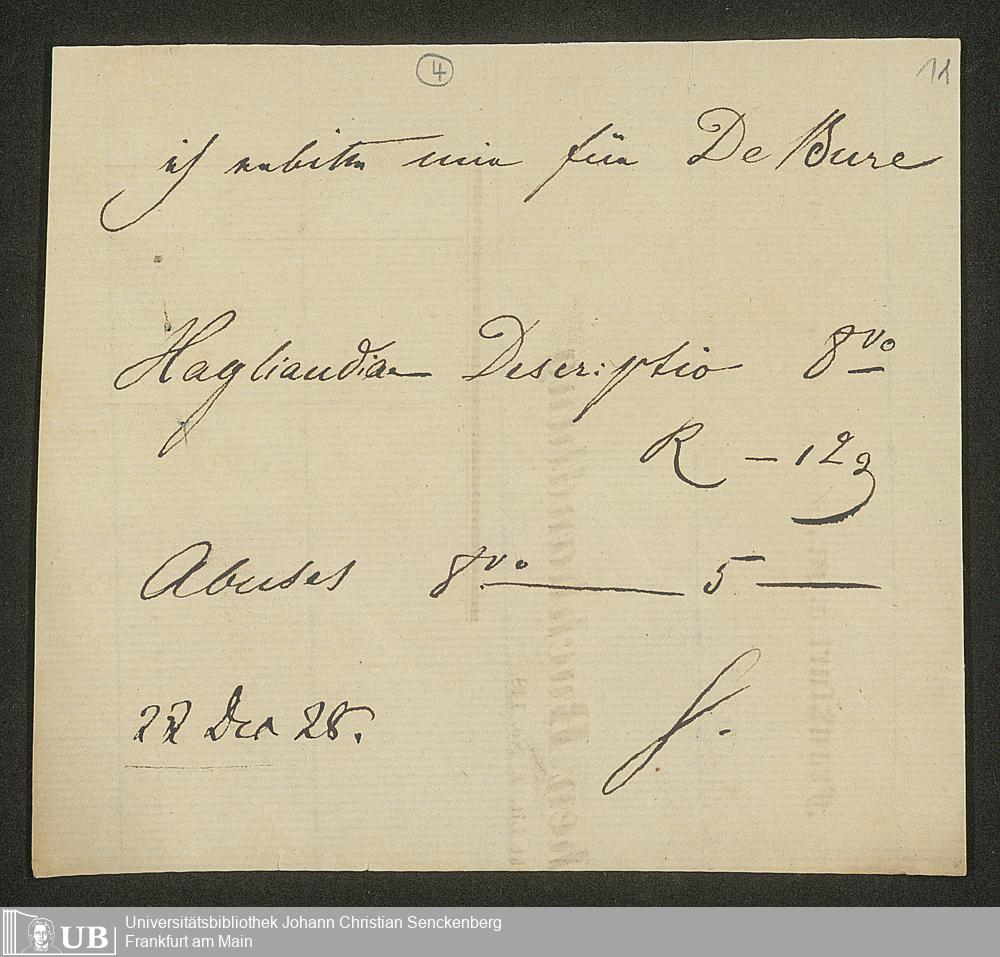 4
11
ich erbitte mir für De Bure
Hagliaudiae Descriptio 8vo
R – 12g
Abuses 8vo — 5 —
22 Dec 28.
S.
Universitätsbibliothek Johann Christian Senckenberg
Frankfurt am Main
UB